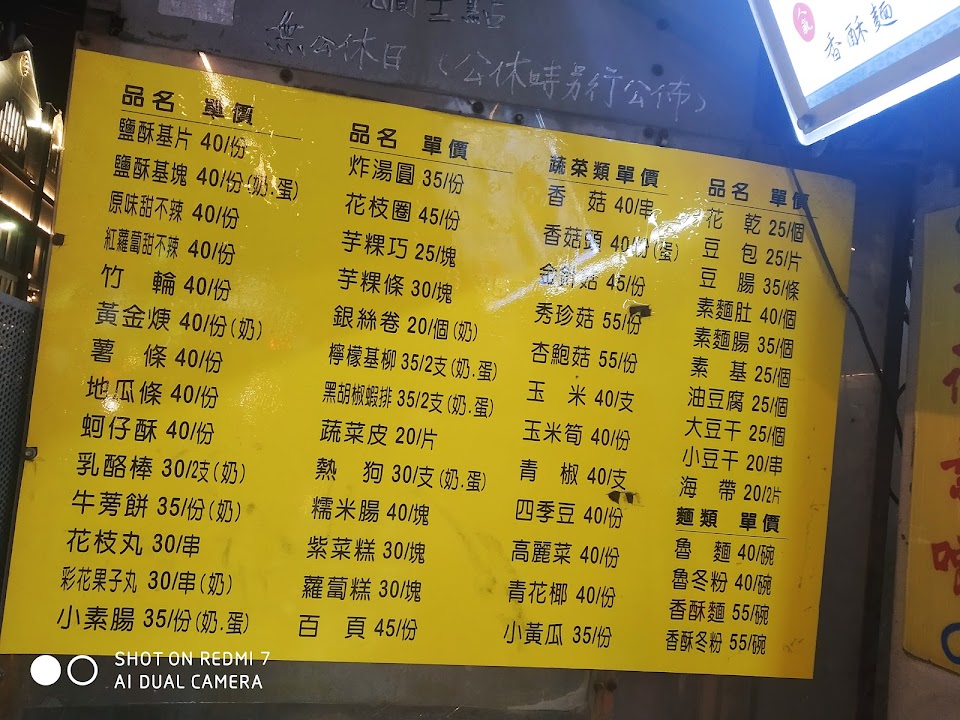 無公休日（公休時另行公佈）
香酥麵
品名 單價
鹽酥基片 40/份
鹽酥基塊 40/份(奶.蛋)
原味甜不辣 40/份
紅蘿蔔甜不辣 40/份
竹輪 40/份
黃金㷫 40/份(奶)
薯條 40/份
地瓜條 40/份
蚵仔酥 40/份
乳酪棒 30/2支(奶)
牛蒡餅 35/份(奶)
花枝丸 30/串
彩花果子丸 30/串(奶)
小素腸 35/份(奶.蛋)
品名 單價
炸湯圓 35/份
花枝圈 45/份
芋粿巧 25/塊
芋粿條 30/塊
銀絲卷 20/個(奶)
檸檬基柳 35/2支(奶.蛋)
黑胡椒蝦排 35/2支(奶.蛋)
蔬菜皮 20/片
熱狗 30/支(奶.蛋)
糯米腸 40/塊
紫菜糕 30/塊
蘿蔔糕 30/塊
百頁 45/份
蔬菜類單價
香菇 40/串
香菇頭 40/份(蛋)
金針菇 45/份
秀珍菇 55/份
杏鮑菇 55/份
玉米 40/支
玉米筍 40/份
青椒 40/支
四季豆 40/份
高麗菜 40/份
青花椰 40/份
小黃瓜 35/份
品名 單價
花乾 25/個
豆包 25/片
豆腸 35/條
素麵肚 40/個
素麵腸 35/個
素基 25/個
油豆腐 25/個
大豆干 25/個
小豆干 20/串
海帶 20/2片
麵類 單價
魯麵 40/碗
魯冬粉 40/碗
香酥麵 55/碗
香酥冬粉 55/碗
SHOT ON REDMI 7
AI DUAL CAMERA